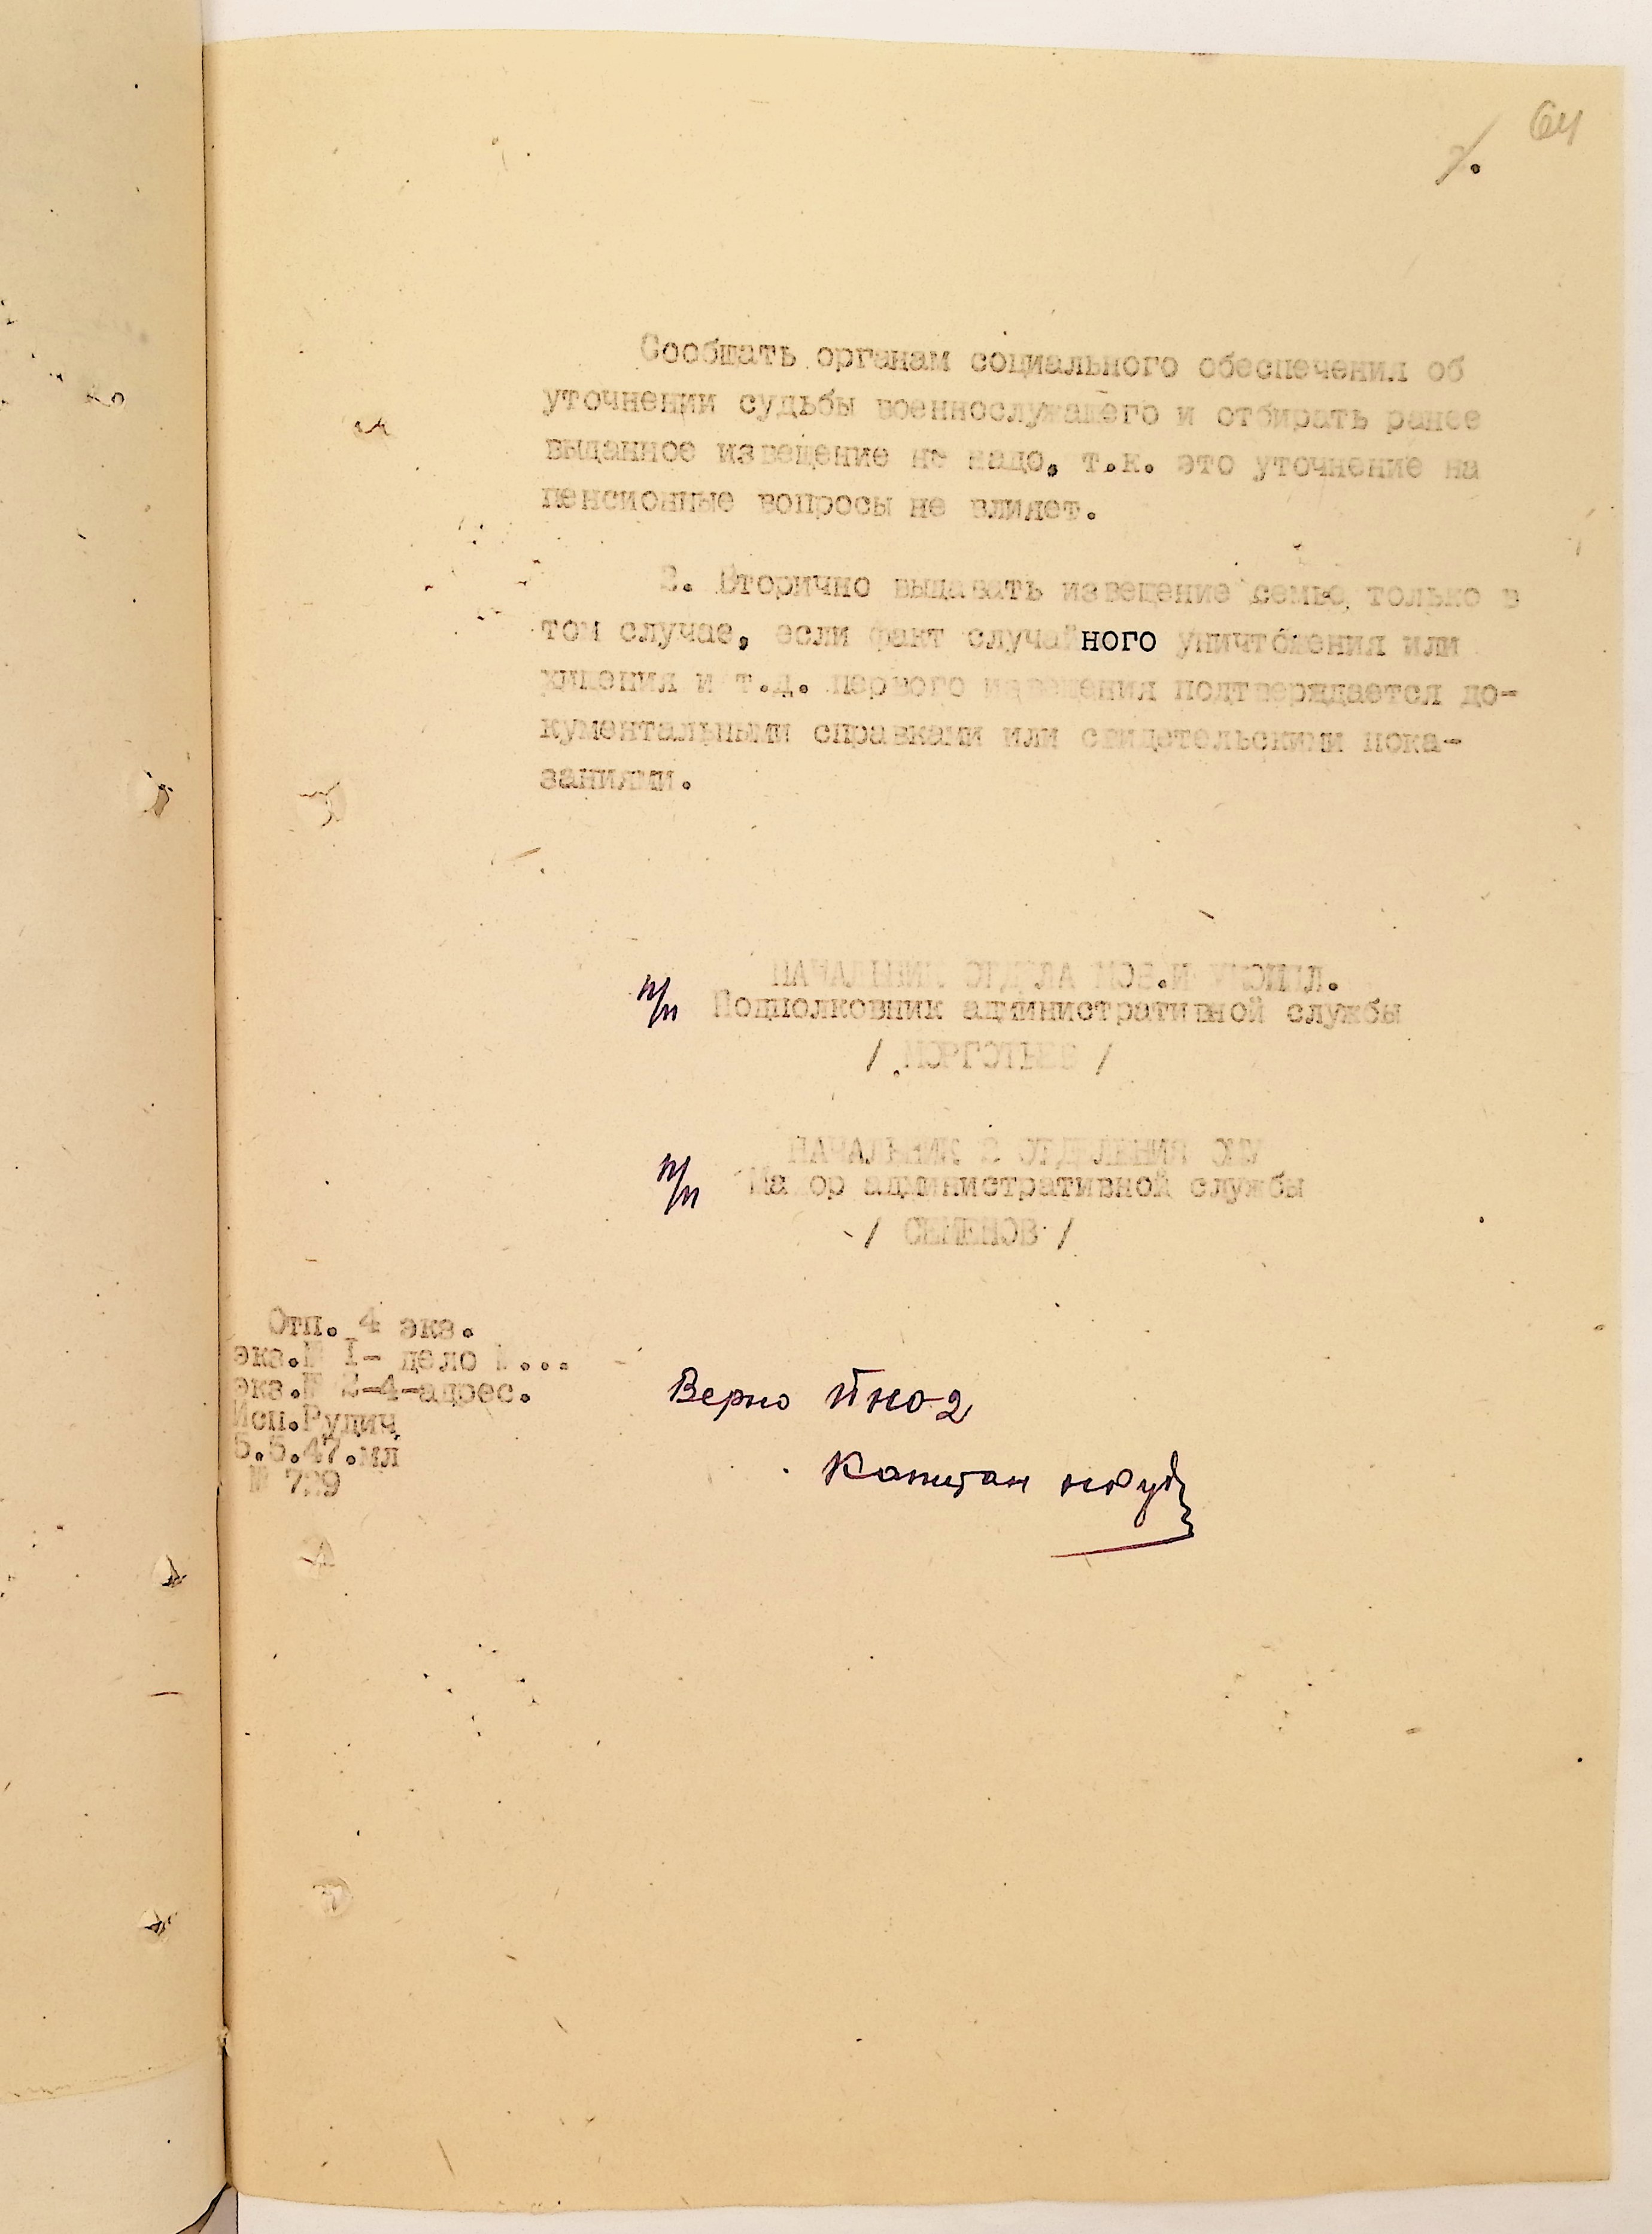 64
Сообщать органам социального обеспечения об
уточнении судьбы военнослужащего и отбирать ранее
выданное извещение не надо, т.к. это уточнение на
пенсионные вопросы не влияет.
2. Вторично выдавать извещение семье только в
том случае, если факт случайного уничтожения или
хищения и т.д. первого извещения подтверждается до-
кументальными справками или свидетельскими пока-
заниями.
НАЧАЛЬНИК ОТДЕЛА
п/п Подполковник административной службы
/ /
НАЧАЛЬНИК 2 ОТДЕЛЕНИЯ
п/п Майор административной службы
/ СЕМЕНОВ /
Отп. 4 экз.
экз.№ 1- дело №...
экз.№ 2-4-адрес.
Исп.Рудич
5.5.47.мл
№ 729
Верно
Капитан